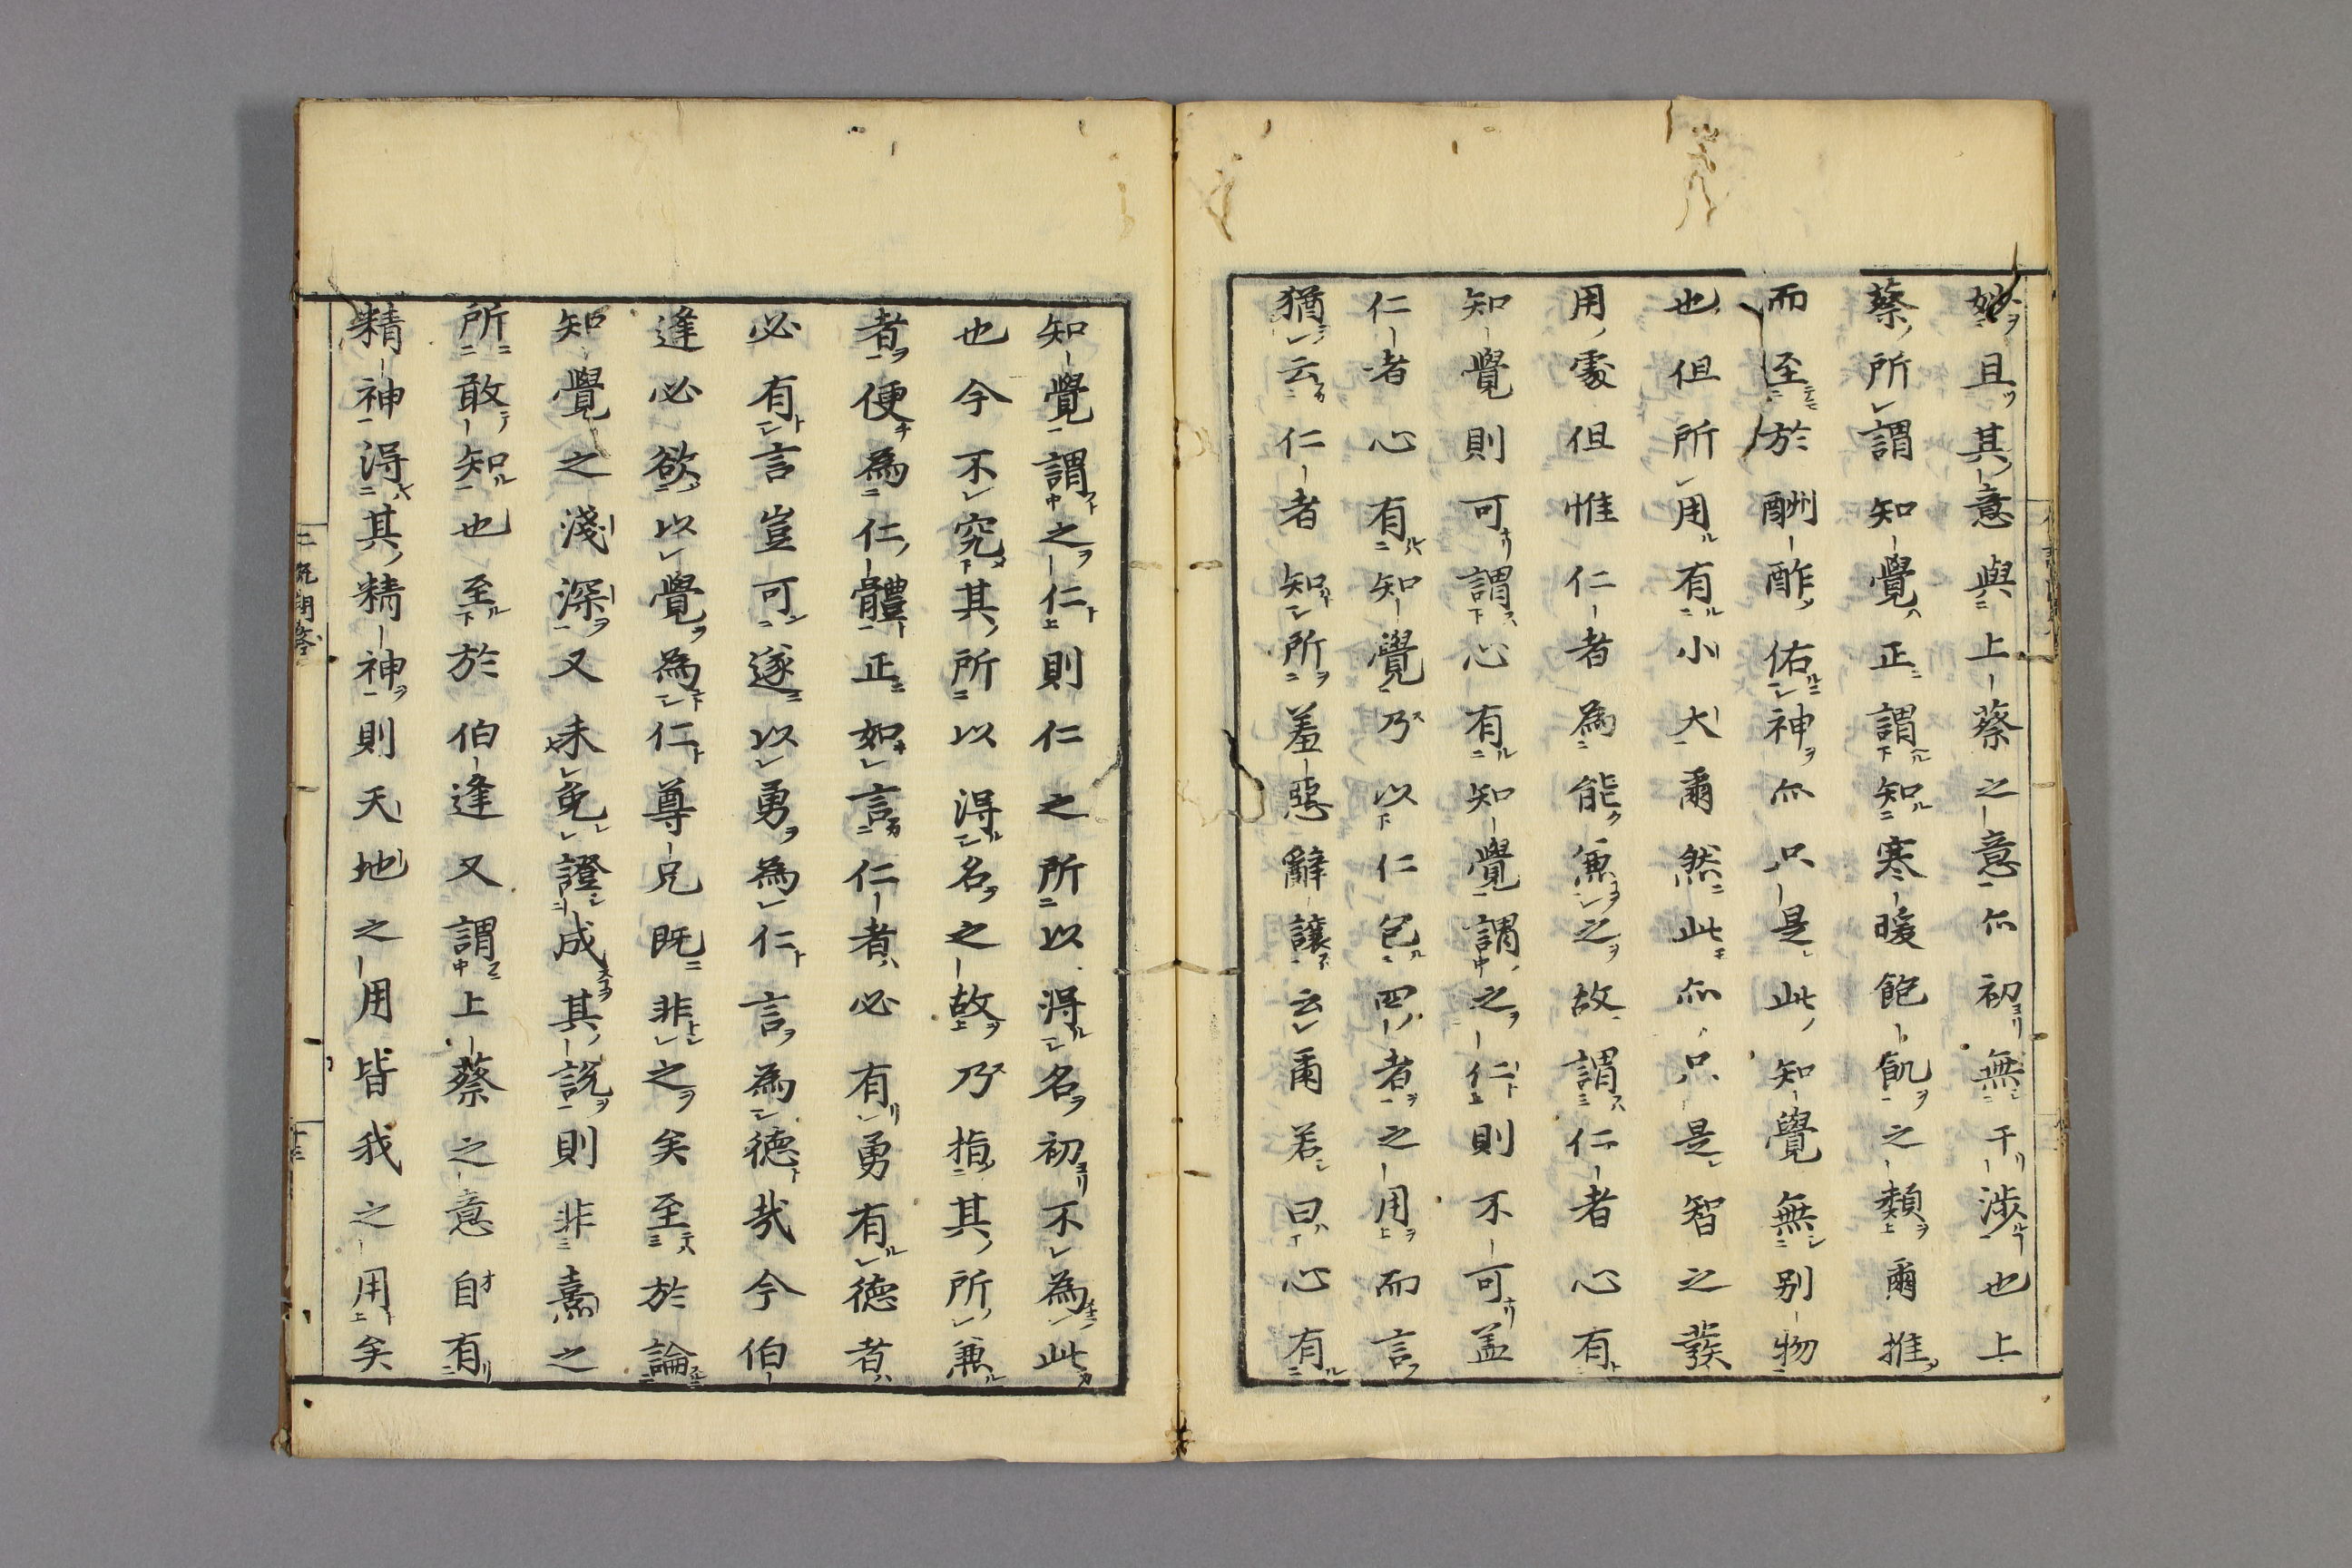 妙且其意與上蔡之意亦初無干涉也上
蔡所謂知覺正謂知寒暖飽飢之類爾推
而至於酬酢佑神亦只是此知覺無別物
也但所用有小大爾然此亦只是智之發
用處但惟仁者為能兼之故謂仁者心有
知覺則可謂心有知覺謂之仁則不可盖
仁者心有知覺乃以仁包四者之用而言
猶云仁者知所羞惡辭讓云爾若曰心有
知覺謂之仁則仁之所以得名初不為此
也今不究其所以得名之故乃指其所兼
者便為仁體正如言仁者必有勇有德者
必有言豈可遂以勇為仁言為德哉今伯
逢必欲以覺為仁尊兄既非之矣至於論
知覺之淺深又未免證成其說則非熹之
所敢知也至於伯逢又謂上蔡之意自有
精神得其精神則天地之用皆我之用矣